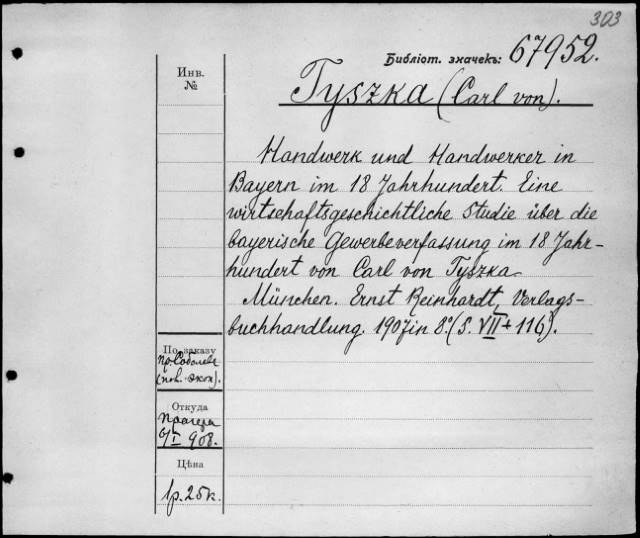 303
Библіот. значекъ: 67952.
Инв.
№
Tyszka (Carl von).
Handwerk und Handwerker in
Bayern im 18 Jahrhundert. Eine
wirtschaftsgeschichtliche Studie über die
bayerische Gewerbeverfassung im 18 Jahr-
hundert von Carl von Tyszka
München. Ernst Reinhardt, Verlags-
buchhandlung. 1907 in 8º (S. VII + 116).
По заказу
пр. Соболев
Откуда
Прагера
6/I 908.
Цѣна
1р. 25к.